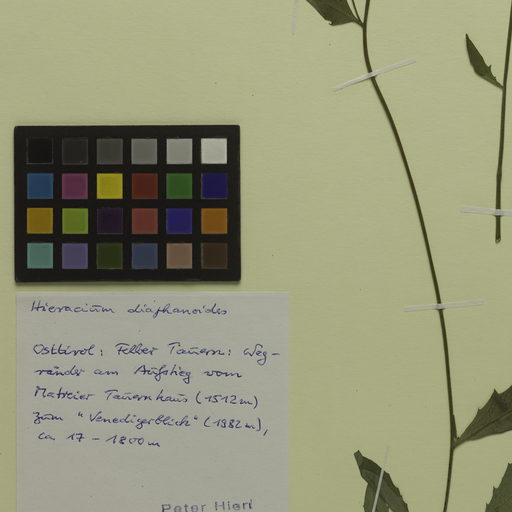 Hieracium diaphanoides
Osttirol: Felber Tauern: Weg-
ränder am Aufstieg vom
Matreier Tauernhaus (1512m)
zum "Venedigerblick" (1982m),
ca 17 - 1800m
Peter Hierl